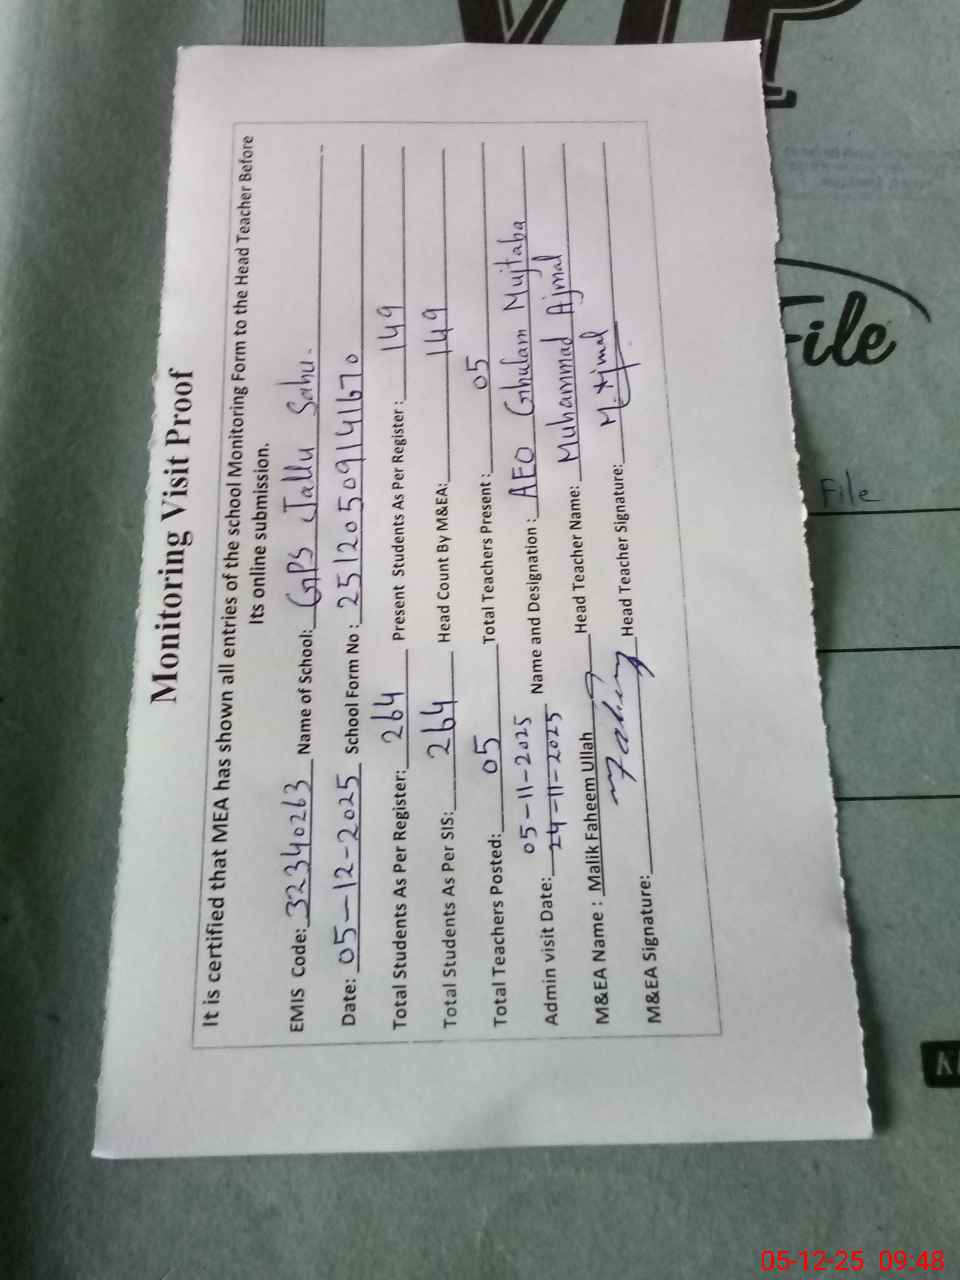 Monitoring Visit Proof
It is certified that MEA has shown all entries of the school Monitoring Form to the Head Teacher Before
Its online submission.
EMIS Code: 32340263 Name of School: GPS Jallu Sahu.
Date: 05-12-2025 School Form No : 25120509141670
Total Students As Per Register: 264 Present Students As Per Register : 149
Total Students As Per SIS: 264 Head Count By M&EA: 149
Total Teachers Posted: 05 Total Teachers Present : 05
05-11-2025
Admin visit Date: 24-11-2025 Name and Designation : AEO Ghulam Mujtaba
M&EA Name : Malik Faheem Ullah Head Teacher Name: Muhammad Ajmal
M&EA Signature: Head Teacher Signature: M. Ajmal
VIP
File
File
05-12-25 09:48